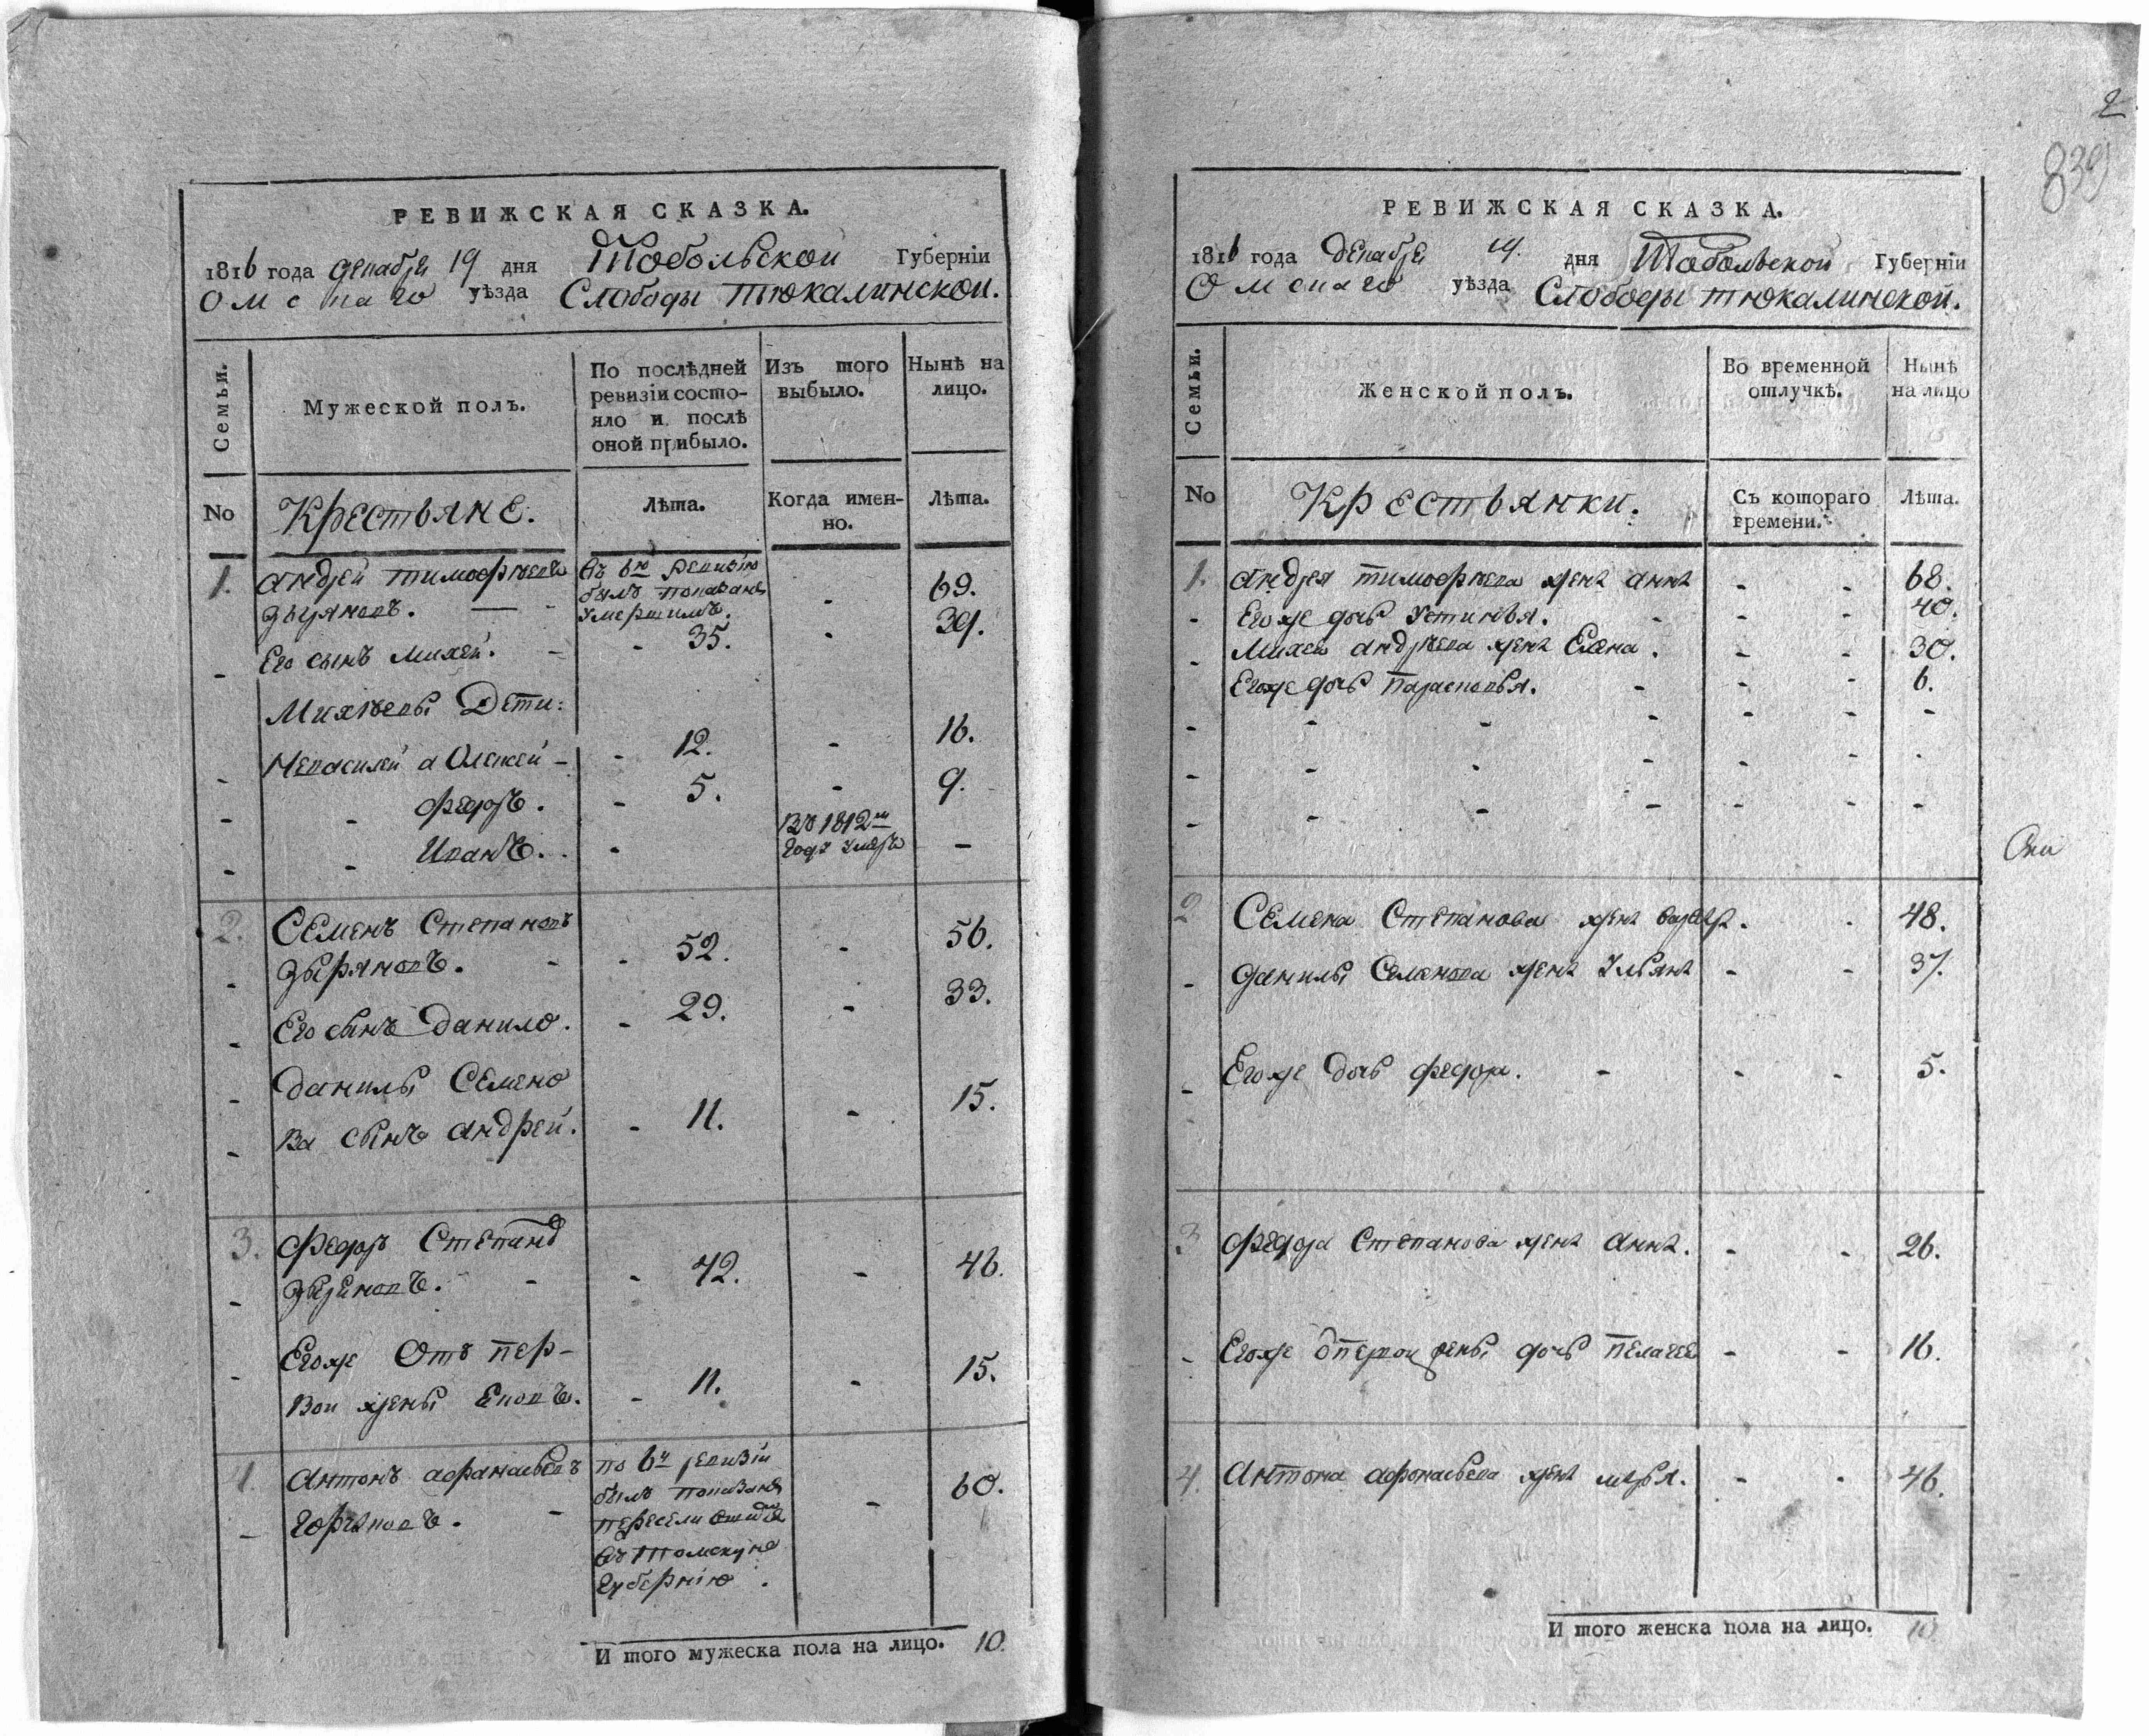 РЕВИЖСКАЯ СКАЗКА.
1816 года декабря 19 дня Тобольской Губерніи
Омскаго уѣзда Слободы тюкалинской.
Семьи.
Мужеской полъ.
По послѣдней ревизіи состо-
яло и послѣ
оной прибыло.
Изъ того
выбыло.
Нынѣ на
лицо.
No
Крестьяне.
Лѣта.
Когда имен-
но.
Лѣта.
1. андрей тимофѣевъ въ 6ю ревизію
зыряновъ. — - былъ показанъ - 69.
умершимъ.
- Его сынъ михей. - - 35. - 39.
Михѣевы Дети:
- Неваcилей а Олексей - - 12. - 16.
- - федоръ. - 5. - 9.
- - Иванъ. - Въ 1812м
годѣ умеръ —
2. Семенъ Степановъ
- зыряновъ. - - 52. - 56.
- Его сынъ данило. - 29. - 33.
- данилы Семено
- ва сынъ андрей. - 11. - 15.
3. федоръ Степановъ
- зыряновъ. - - 42. - 46.
- Егоже Отъ пер-
вои жены - 11. - 15.
4. антонъ афанасьевъ по 6й ревизіи
- - былъ показанъ - 60.
въ Томскую
губернію.
И того мужеска пола на лицо. 10.
2
839
РЕВИЖСКАЯ СКАЗКА.
1816 года декабря 19. дня Тобольской Губерніи
Омскаго уѣзда Слободы тюкалинской.
Семьи.
Женской полъ.
Во временной
отлучкѣ.
Нынѣ
на лицо
No
Крестьянки.
Съ котораго
времени.
Лѣта.
1. андрея тимофѣева женъ анна - - 68.
- Егоже дочь Устинья. - - - 40.
- Михея андрѣева женъ Елена. - - 30.
- Егоже дочь параскевья. - - - 6.
- - - - - - -
- - - - - - -
- - - - - - -
Они
2 Семена Степанова женъ - 48.
- данилы Семенова женъ Ульяна - - 37.
- Егоже дочь федора. - - - 5.
3 федора Степанова женъ анна. - - 26.
- Егоже жены дочь пелагея - - 16.
4. антона афонасьева женъ марья. - - 46.
И того женска пола на лицо. 10.